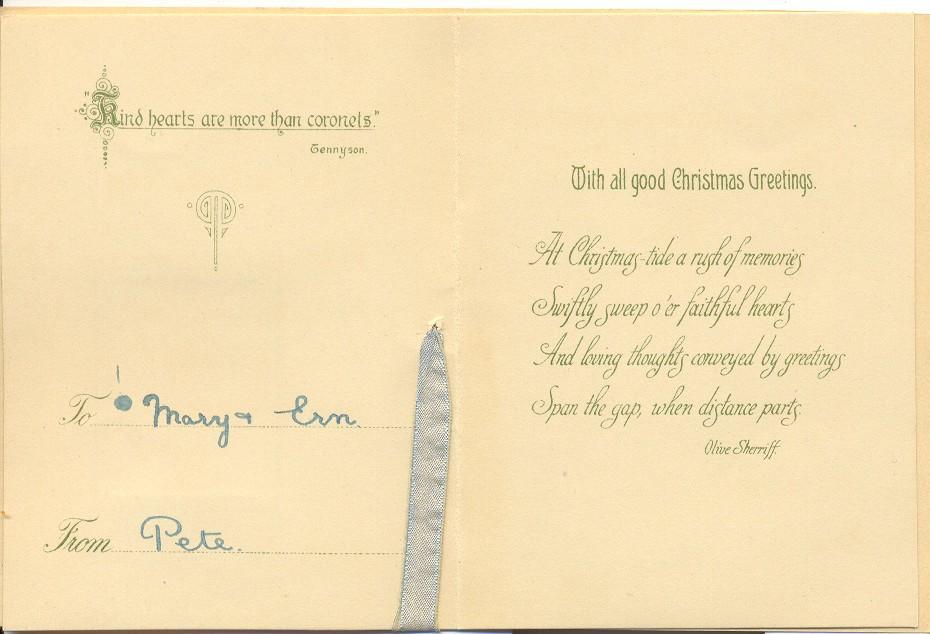 "Kind hearts are more than coronets."
Tennyson.
To Mary & Ern.
From Pete.
With all good Christmas Greetings.
At Christmas-tide a rush of memories
Swiftly sweep o'er faithful hearts
And loving thoughts conveyed by greetings
Span the gap, when distance parts.
Olive Sherriff.